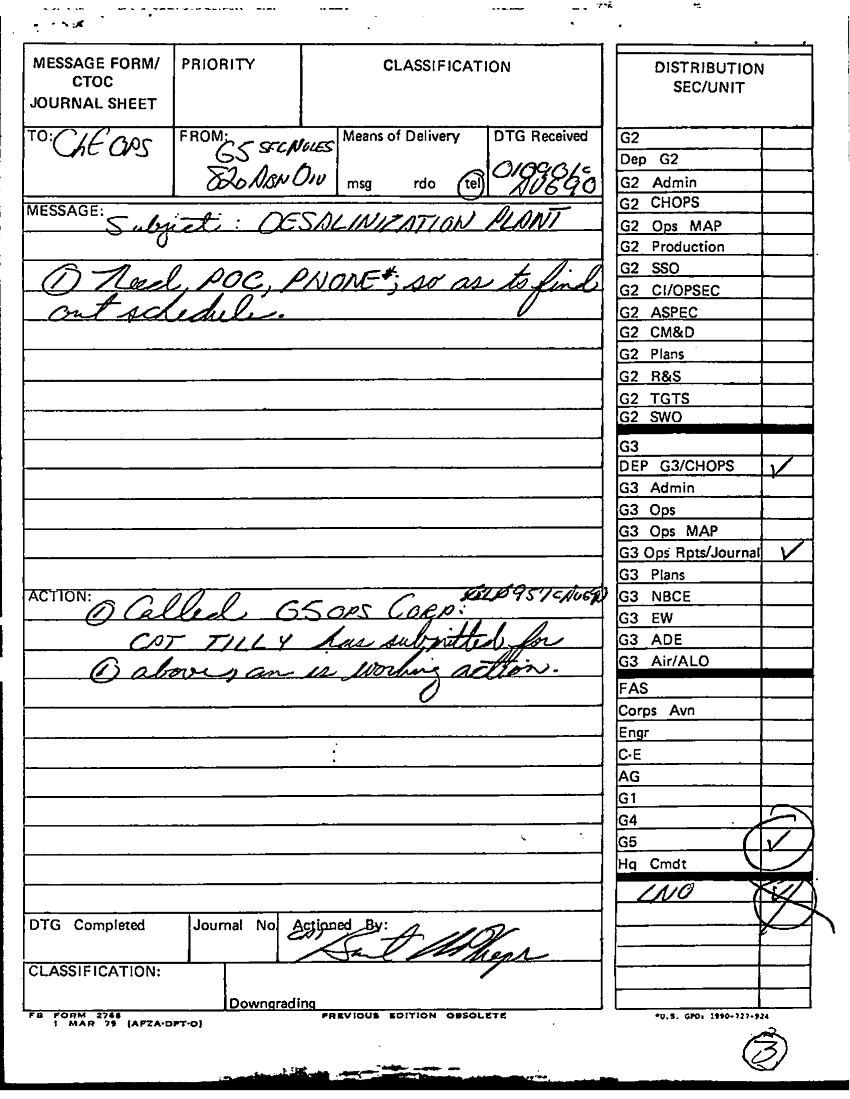 MESSAGE FORM/
CTOC
JOURNAL SHEET
PRIORITY
CLASSIFICATION
TO: ChE OPS
FROM: G5 SFC NULES
82D ABN DIV
Means of Delivery
msg rdo tel
DTG Received
010901C
AUG90
MESSAGE:
Subject: DESALINIZATION PLANT
① Need POC, PHONE#, so as to find
out schedule.
ACTION:
① Called G5 OPS CORP:
CPT TILLY has submitted for
① above, an is working action.
DTG Completed
Journal No.
Actioned By:
CPT
CLASSIFICATION:
Downgrading
FB FORM 2748
1 MAR 79 (AFZA-DPT-O)
PREVIOUS EDITION OBSOLETE
DISTRIBUTION
SEC/UNIT
G2
Dep G2
G2 Admin
G2 CHOPS
G2 Ops MAP
G2 Production
G2 SSO
G2 CI/OPSEC
G2 ASPEC
G2 CM&D
G2 Plans
G2 R&S
G2 TGTS
G2 SWO
G3
DEP G3/CHOPS ✓
G3 Admin
G3 Ops
G3 Ops MAP
G3 Ops Rpts/Journal ✓
G3 Plans
G3 NBCE
G3 EW
G3 ADE
G3 Air/ALO
FAS
Corps Avn
Engr
C-E
AG
G1
G4
G5 ✓
Hq Cmdt
LNO ✓
*U.S. GPO: 1990-727-924
3